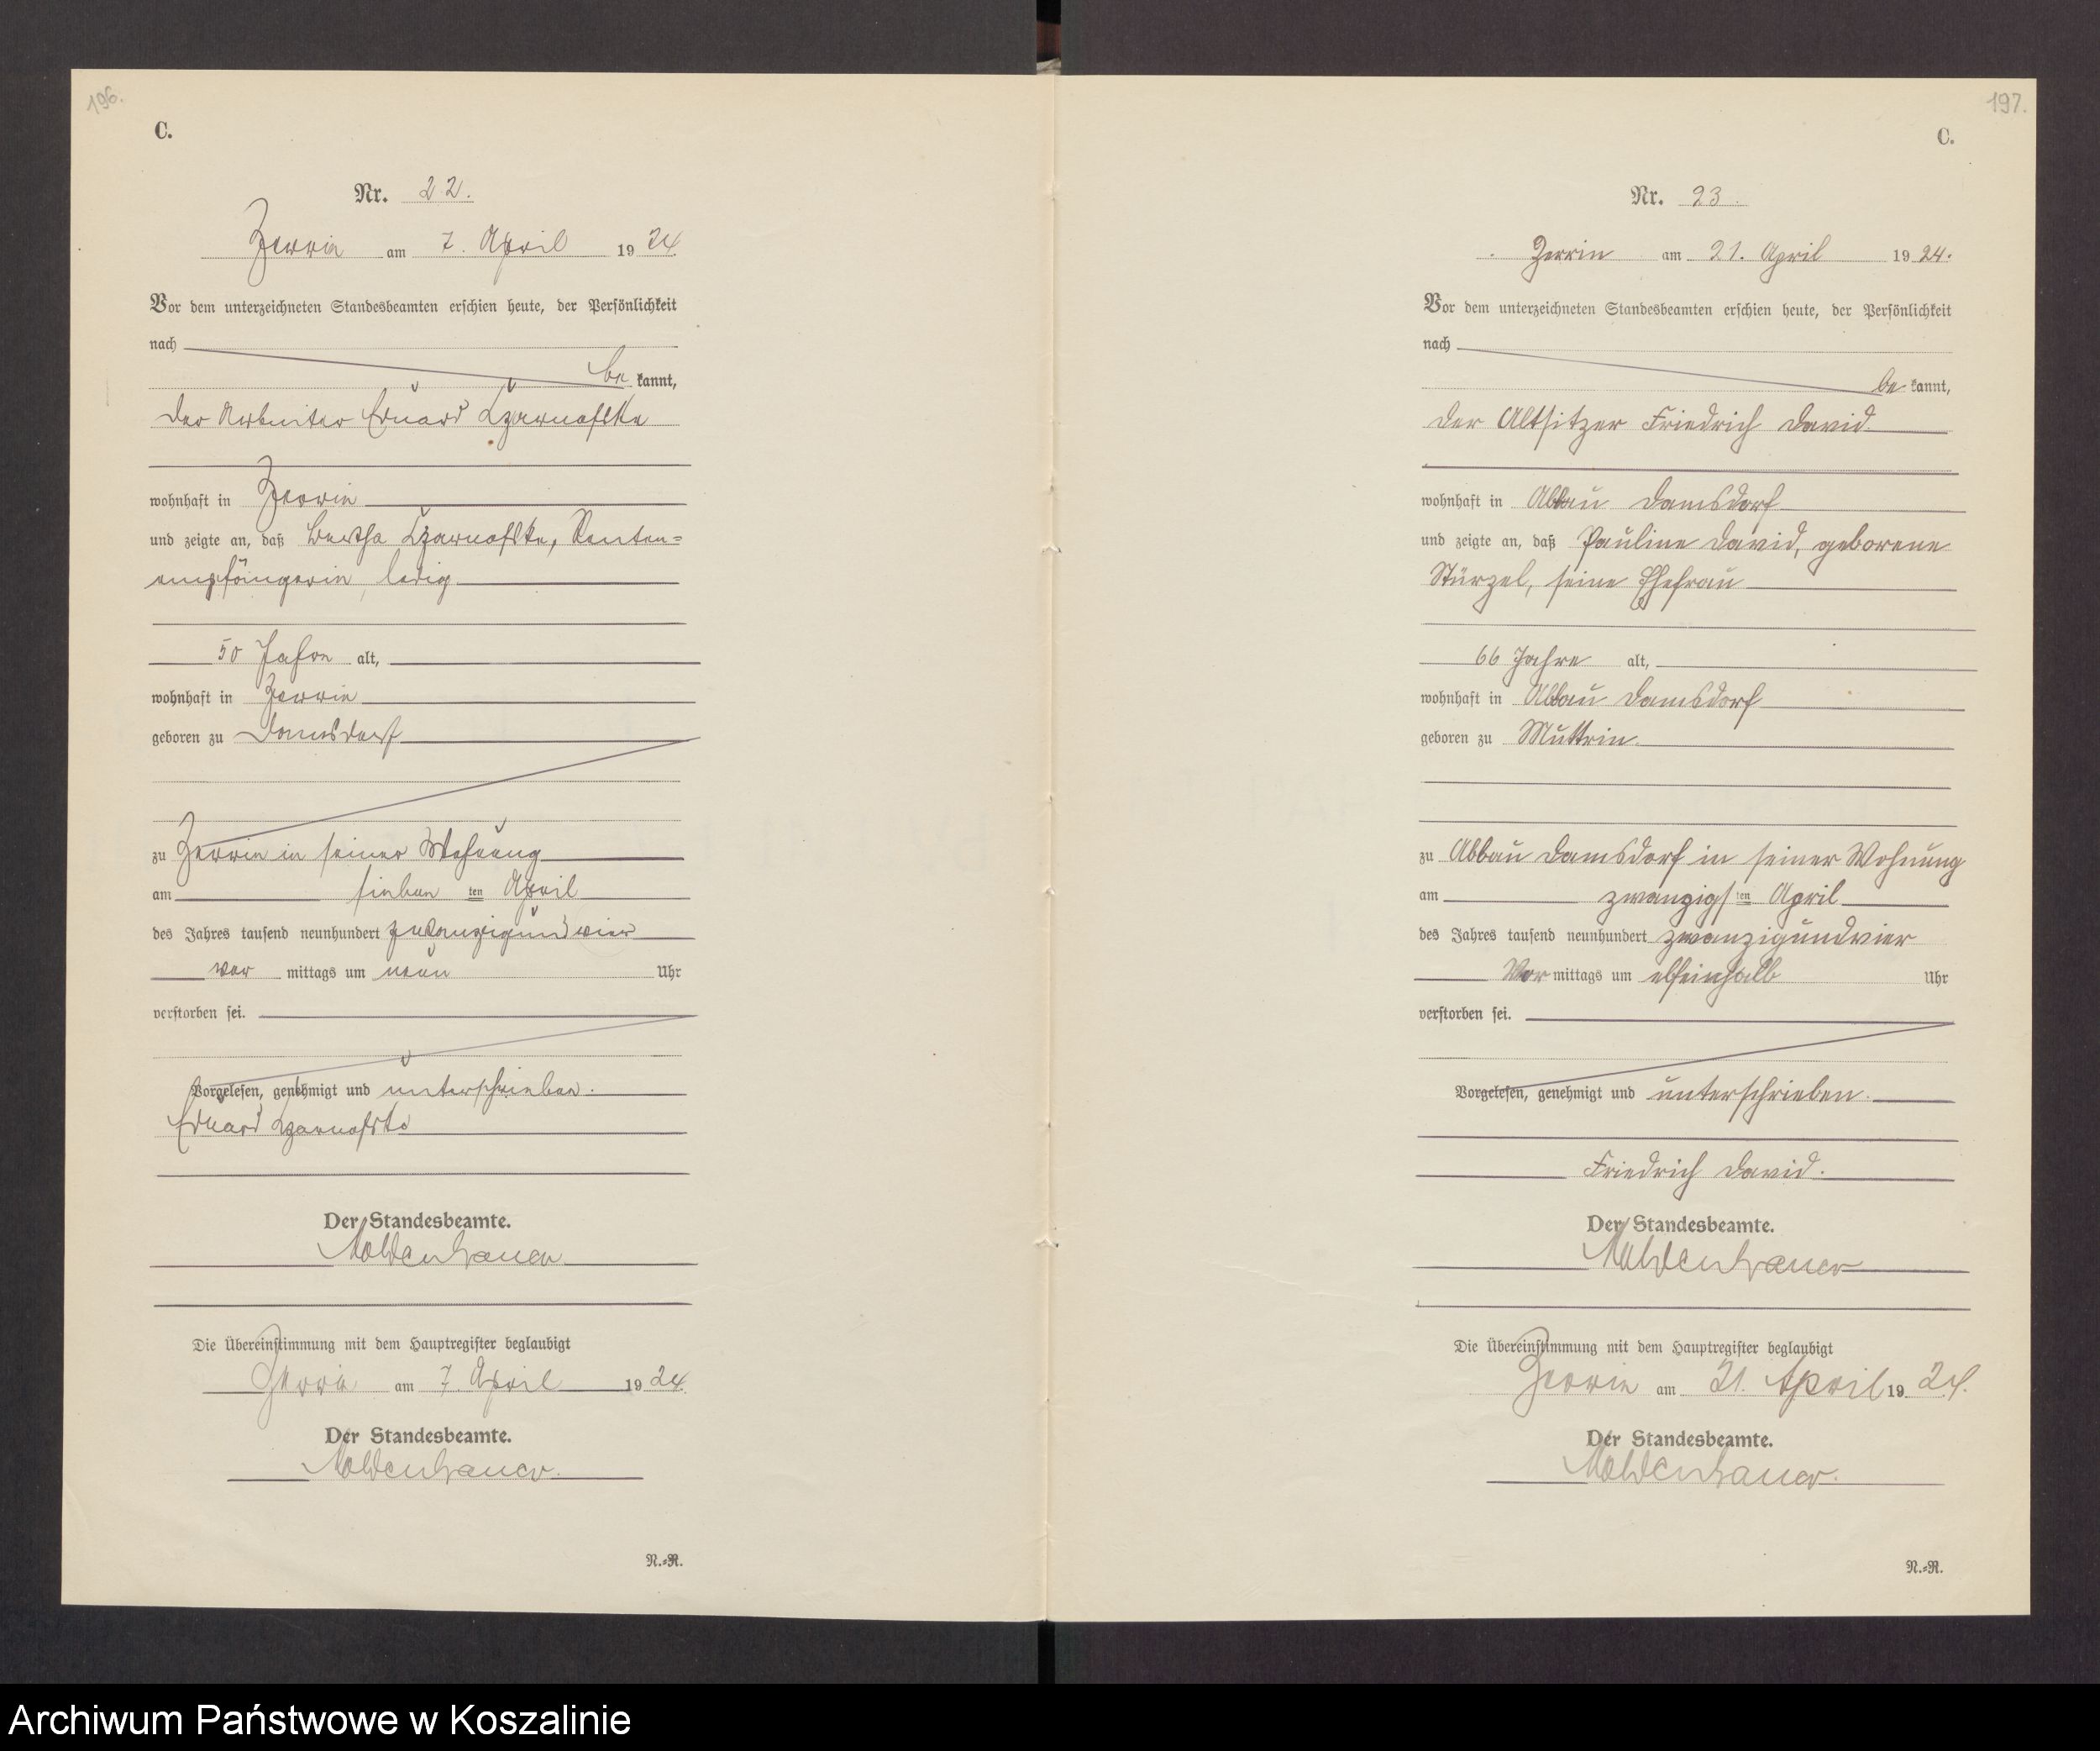 196.
C.
Nr. 22.
Zerrin am 7. April 1924
Vor dem unterzeichneten Standesbeamten erschien heute, der Persönlichkeit
nach
be kannt,
der Arbeiter Eduard Czarnofske
wohnhaft in Zerrin
und zeigte an, daß Bertha Czarnofske, Renten=
empfängerin, ledig
50 Jahre alt,
wohnhaft in Zerrin
geboren zu Damsdorf
zu Zerrin in seiner Wohnung
am sieben ten April
des Jahres tausend neunhundert zwanzigundvier
vor mittags um neun Uhr
verstorben sei.
Vorgelesen, genehmigt und unterschrieben.
Eduard
Der Standesbeamte.
Moldenhauer
Die Übereinstimmung mit dem Hauptregister beglaubigt
Zerrin am 7. April 1924
Der Standesbeamte.
Moldenhauer.
N.=R.
197.
C.
Nr. 23.
Zerrin am 21. April 1924.
Vor dem unterzeichneten Standesbeamten erschien heute, der Persönlichkeit
nach
be kannt,
der Altsitzer Friedrich David
wohnhaft in Abbau Damsdorf
und zeigte an, daß Pauline David, geborene
Stürzel, seine Ehefrau
66 Jahre alt,
wohnhaft in Abbau Damsdorf
geboren zu Muttrin.
zu Abbau Damsdorf in seiner Wohnung
am zwanzigs ten April
des Jahres tausend neunhundert zwanzigundvier
Vor mittags um elfeinhalb Uhr
verstorben sei.
Vorgelesen, genehmigt und unterschrieben.
Friedrich David.
Der Standesbeamte.
Moldenhauer
Die Übereinstimmung mit dem Hauptregister beglaubigt
Zerrin am 21. April 1924.
Der Standesbeamte.
Moldenhauer.
N.=R.
Archiwum Państwowe w Koszalinie